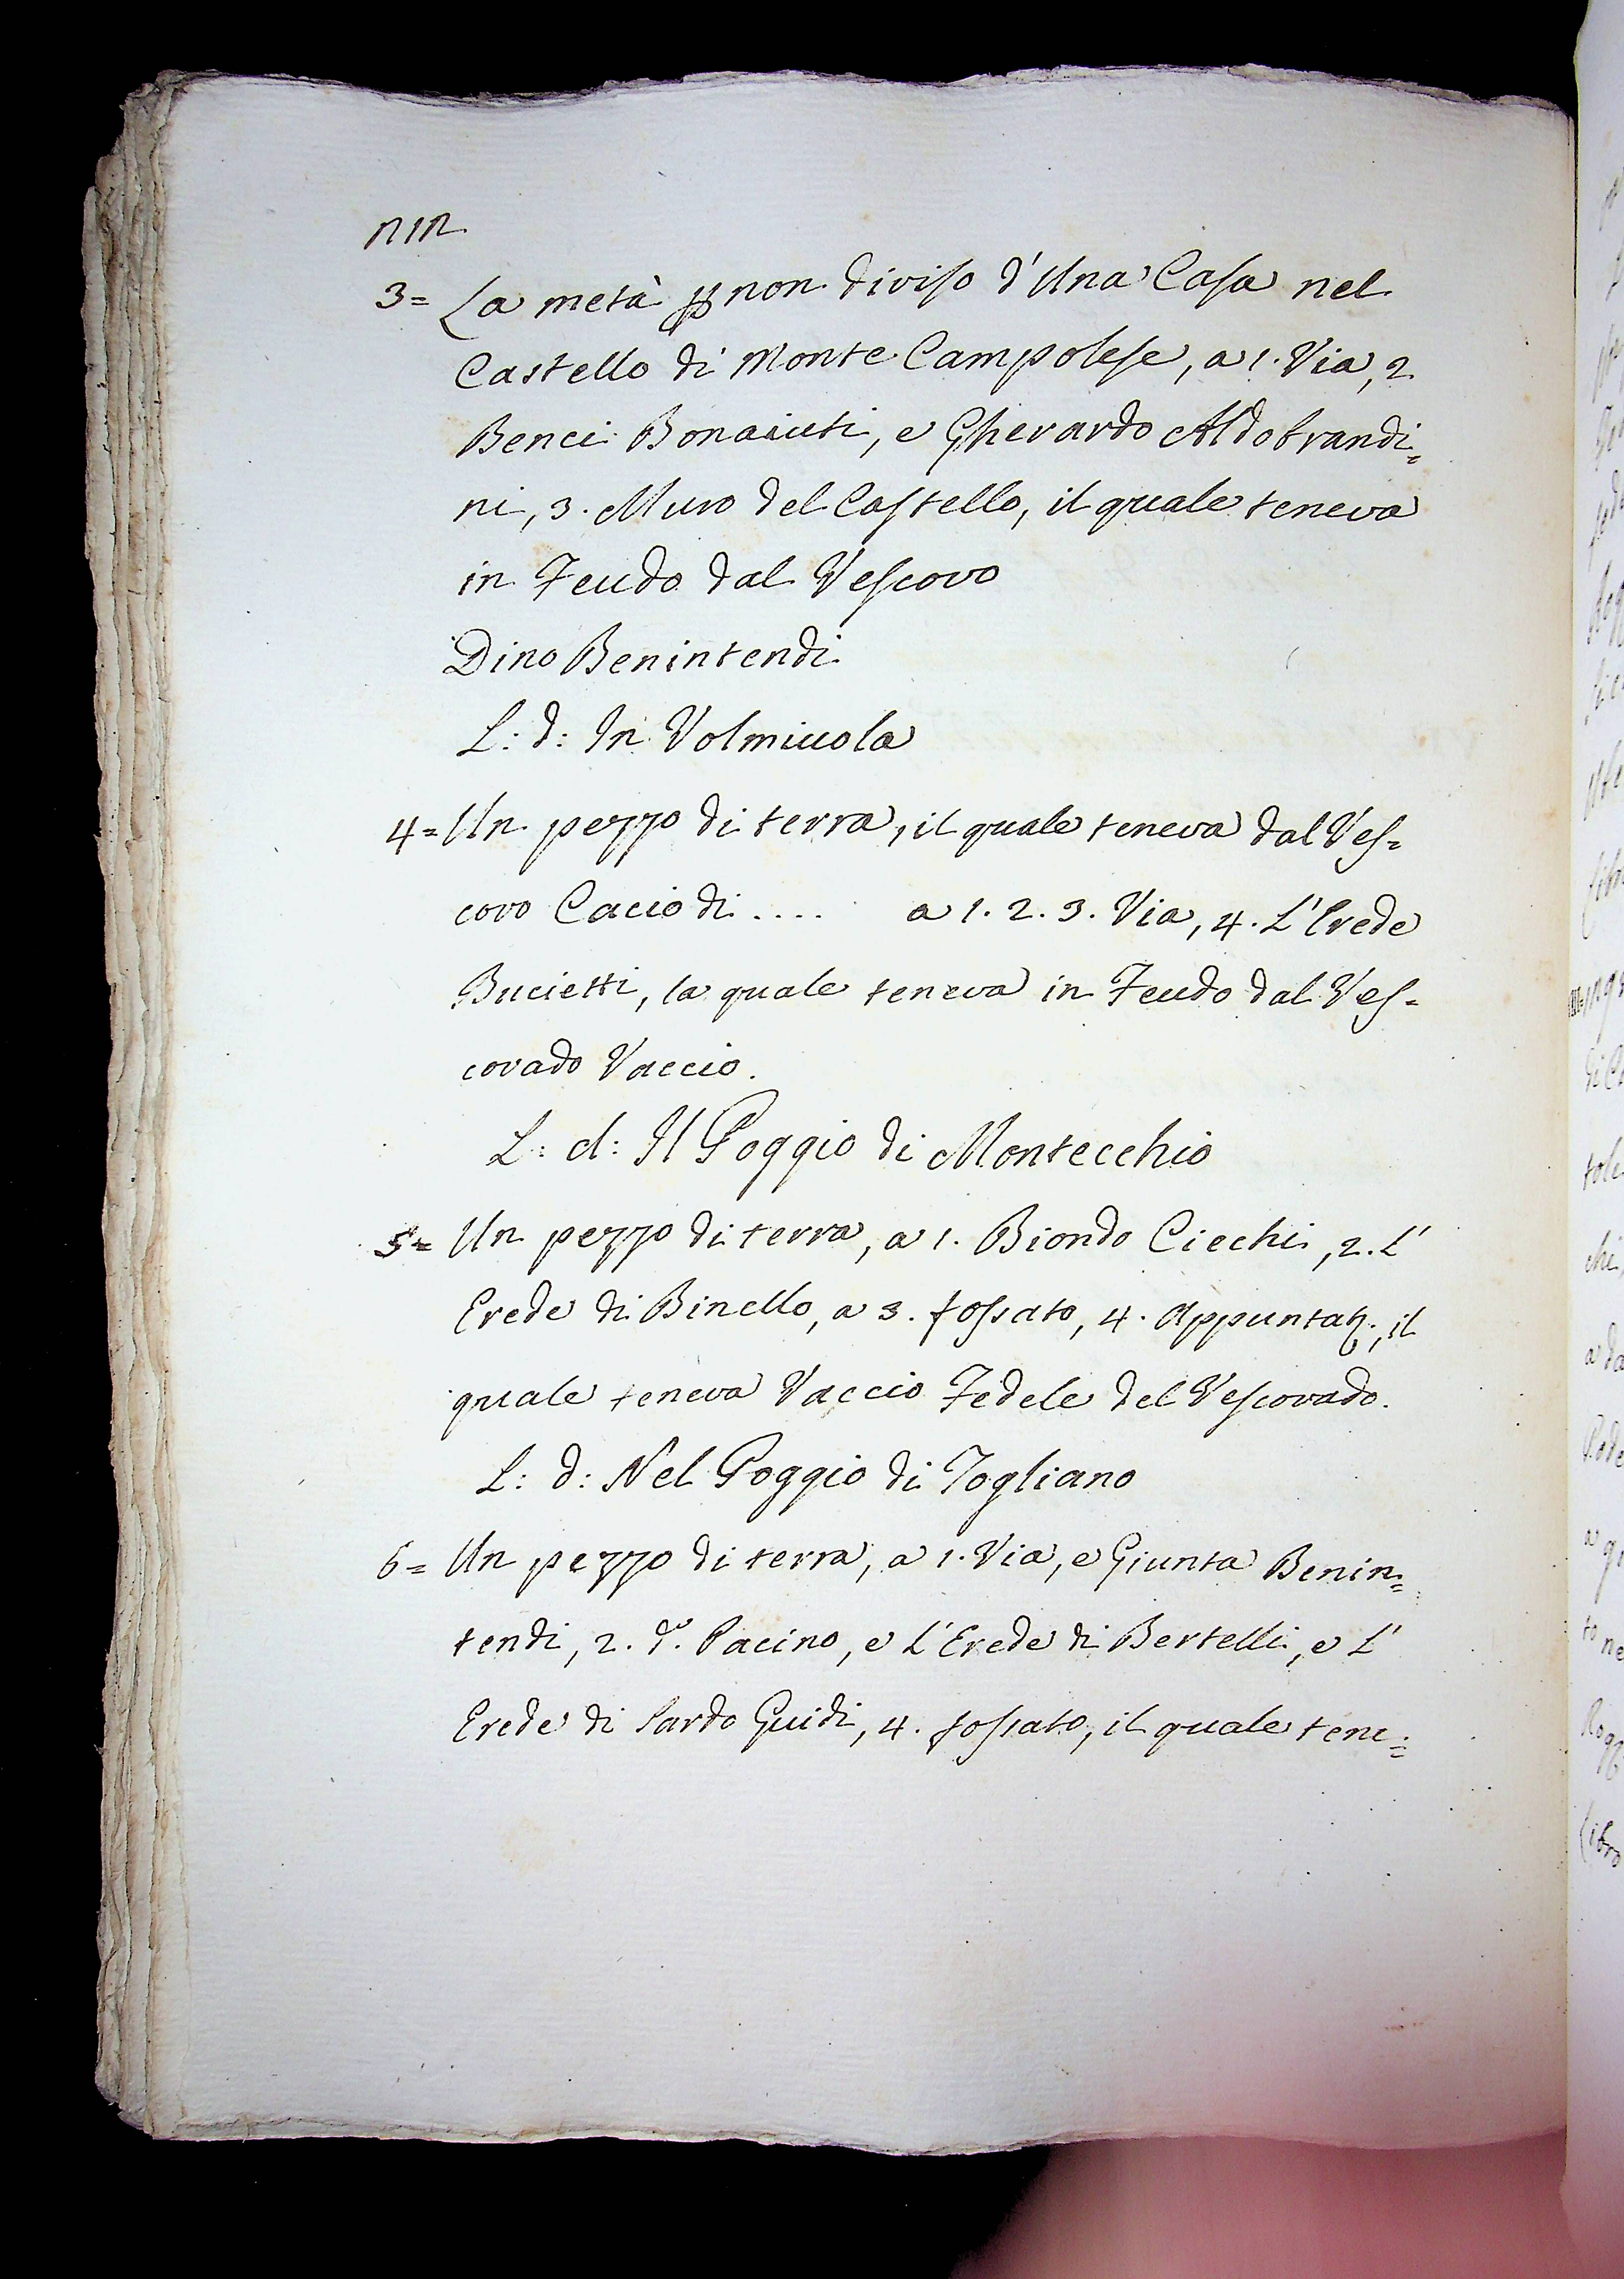 nin
3= La metà p non diviso d'Una Casa nel
Castello di Monte Campolese, a 1. Via, 2
Benci Bonaiuti, e Gherardo Aldobrandi=
ni, 3. Muro del Castello, il quale teneva
in Feudo dal Vescovo
Dino Benintendi
L: d: In Volmiuola
4= Un pezzo di terra, il quale teneva dal Ves=
covo Cacio di .... a 1. 2. 3. Via, 4. L'Erede
Bucietti, la quale teneva in Feudo dal Ves=
covado Vaccio.
L: d: Il Poggio di Montecchio
5= Un pezzo di terra, a 1. Biondo Ciechi, 2. L'
Erede di Binello, a 3. fossato, 4. il
quale teneva Vaccio Fedele del Vescovado.
L: d: Nel Poggio di Togliano
6= Un pezzo di terra, a 1. Via, e Giunta Benin=
tendi, 2. d.o Pacino, e L'Erede di Bertelli, e L'
Erede di Sardo Guidi, 4. fossato, il quale tene=